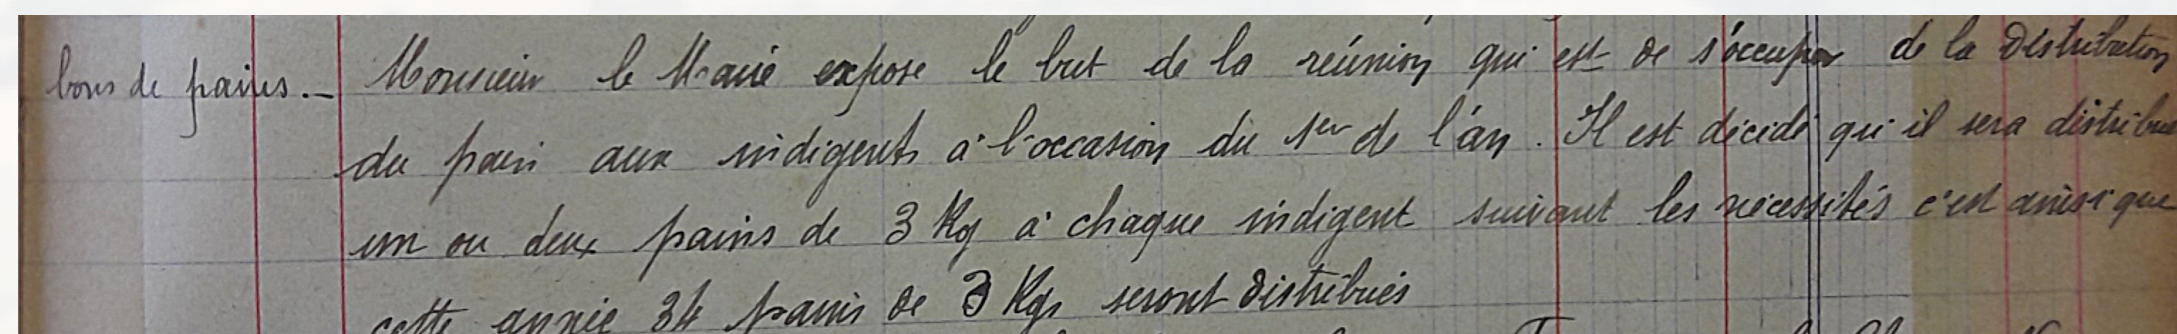 bons de paines. - Monsieur le Maire expose le but de la réunion qui est de s'occuper de la distribution
du pain aux indigents à l'occasion du 1er de l'an. Il est décidé qu'il sera distribué
un ou deux pains de 3 Kg à chaque indigent suivant les nécessités c'est ainsi que
cette année 34 pains de 3 Kgs seront distribués